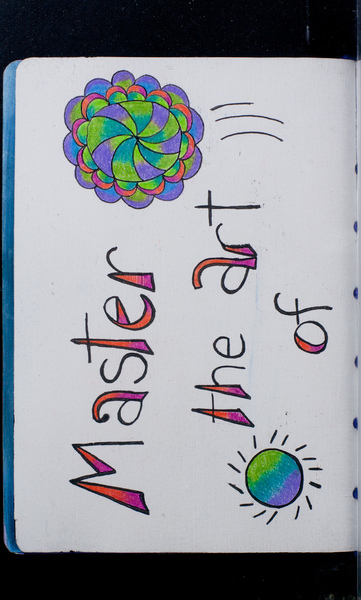 Master
the art
of